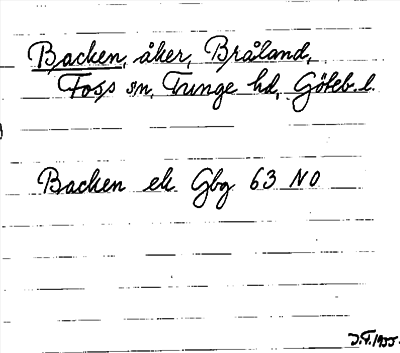 Backen, åker, Bråland,
Foss sn, Tunge hd, Göteb. l.
Backen ek Gbg 63 NO
J.F. 1955.